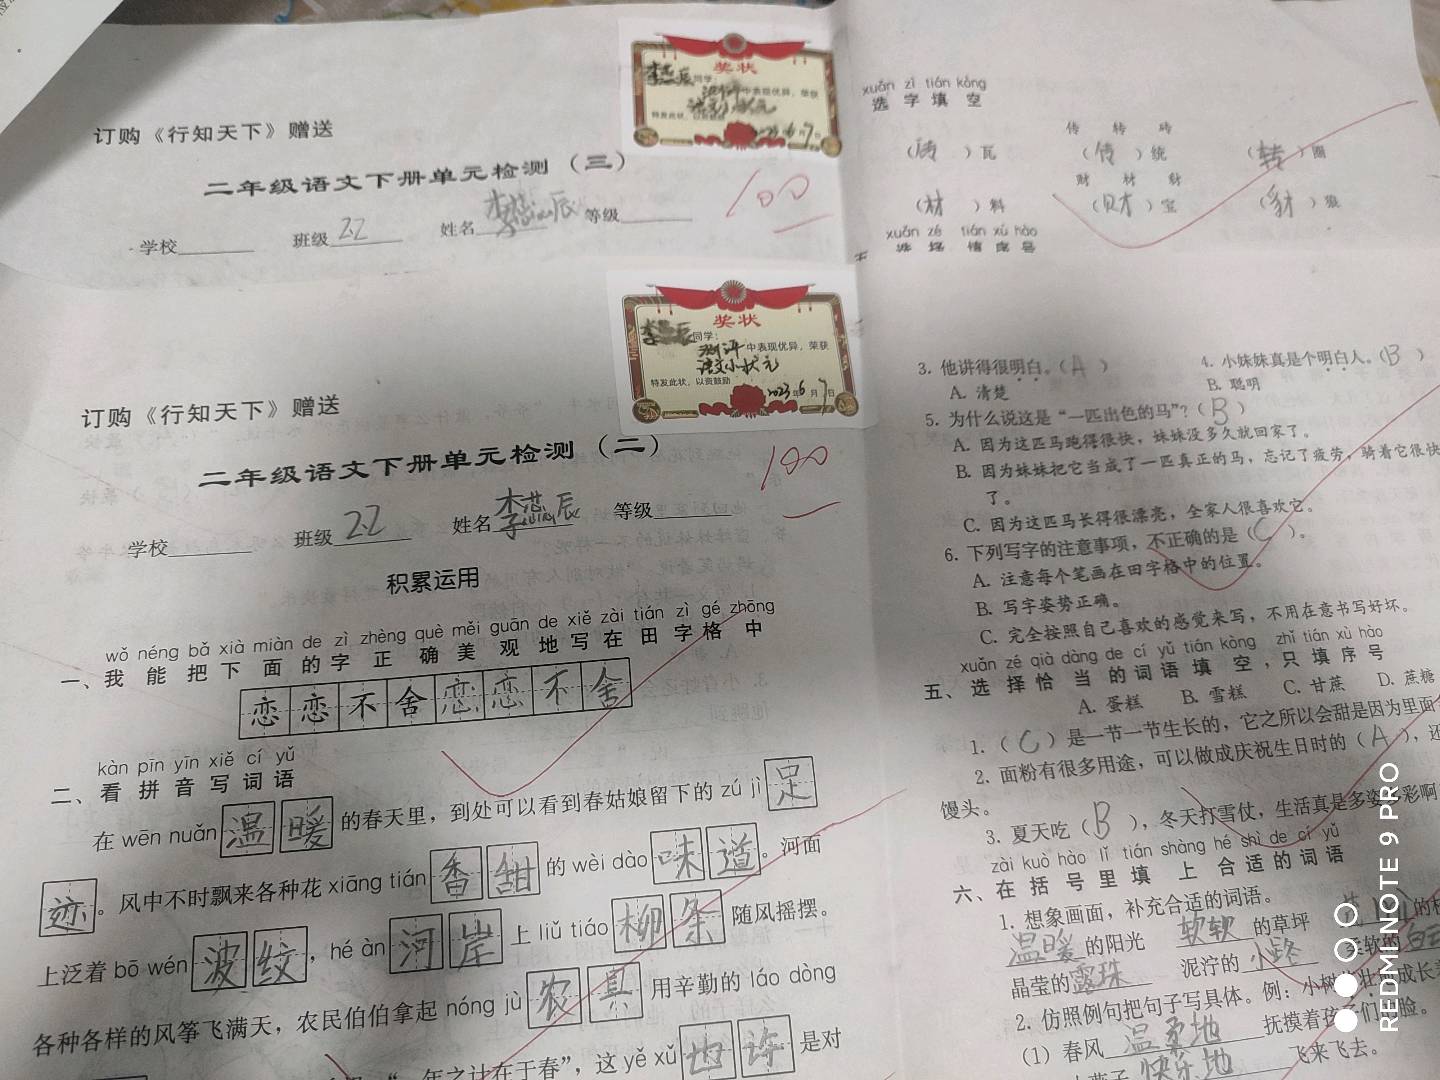 订购《行知天下》赠送
二年级语文下册单元检测（三）
学校 班级 22 姓名 李燕辰 等级
100
奖状
同学：
中表现优异，荣获
特发此状，以资鼓励
2023年6月7日
xuǎn zì tián kòng
选字填空
传 转 砖
（砖）瓦 （传）统 （转）圈
财 材 豺
（材）料 （财）宝 （豺）狼
xuǎn zé tián xù hào
选择 填序号
订购《行知天下》赠送
二年级语文下册单元检测（二）
学校 班级 22 姓名 李燕辰 等级
100
奖状
同学：
测评中表现优异，荣获
语文小状元
特发此状，以资鼓励
2023年6月7日
积累运用
wǒ néng bǎ xià miàn de zì zhèng què měi guān de xiě zài tián zì gé zhōng
一、我能把下面的字正确美观地写在田字格中
恋恋不舍恋恋不舍
kàn pīn yīn xiě cí yǔ
二、看拼音写词语
在 wēn nuǎn 温暖 的春天里，到处可以看到春姑娘留下的 zú jì 足
迹。风中不时飘来各种花 xiāng tián 香甜 的 wèi dào 味道。河面
上泛着 bō wén 波纹，hé àn 河岸 上 liǔ tiáo 柳条 随风摇摆。
各种各样的风筝飞满天，农民伯伯拿起 nóng jù 农具 用辛勤的 láo dòng
年之计在于春”，这 yě xǔ 也许 是对
3. 他讲得很明白。（A） 4. 小妹妹真是个明白人。（B）
A. 清楚 B. 聪明
5. 为什么说这是“一匹出色的马”？（B）
A. 因为这匹马跑得很快，妹妹没多久就回家了。
B. 因为妹妹把它当成了一匹真正的马，忘记了疲劳，骑着它很快
了。
C. 因为这匹马长得很漂亮，全家人很喜欢它。
6. 下列写字的注意事项，不正确的是（C）。
A. 注意每个笔画在田字格中的位置。
B. 写字姿势正确。
C. 完全按照自己喜欢的感觉来写，不用在意书写好坏。
xuǎn zé qià dàng de cí yǔ tián kòng zhǐ tián xù hào
五、选择恰当的词语填空，只填序号
A. 蛋糕 B. 雪糕 C. 甘蔗 D. 蔗糖
1.（C）是一节一节生长的，它之所以会甜是因为里面
2. 面粉有很多用途，可以做成庆祝生日时的（A），还
馒头。
3. 夏天吃（B），冬天打雪仗，生活真是多姿多彩啊
zài kuò hào lǐ tián shàng hé shì de cí yǔ
六、在括号里填上合适的词语
1. 想象画面，补充合适的词语。
温暖的阳光 软软的草坪
晶莹的露珠 泥泞的小路 柔软的白云
2. 仿照例句把句子写具体。例：小树苗壮成长
（1）春风温柔地抚摸着孩子们的脸。
快乐地飞来飞去。
REDMI NOTE 9 PRO